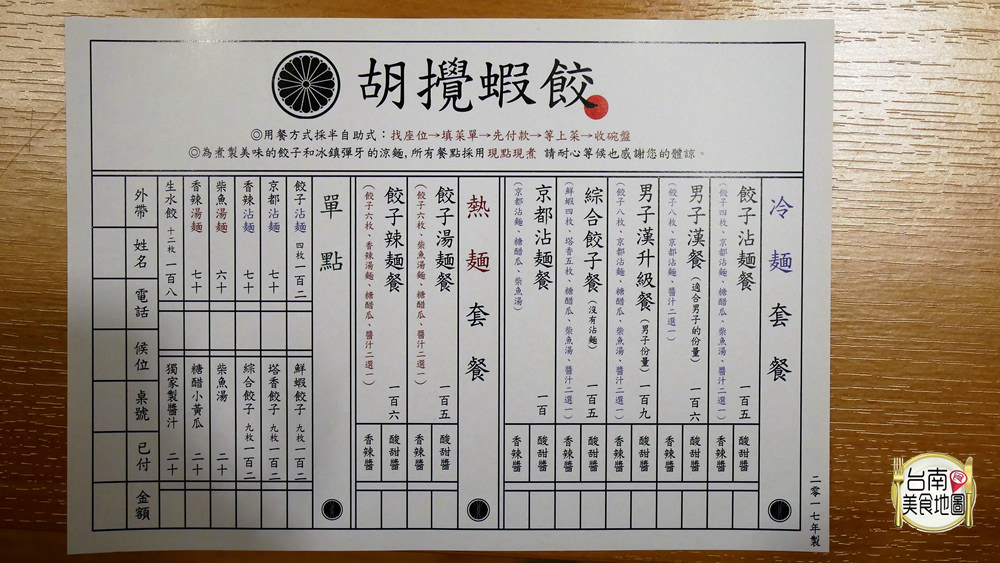 胡攪蝦餃
◎用餐方式採半自助式：找座位→填菜單→先付款→等上菜→收碗盤
◎為煮製美味的餃子和冰鎮彈牙的涼麵，所有餐點採用現點現煮 請耐心等候也感謝您的體諒。
冷麵套餐
餃子沾麵餐 一百五
（餃子四枚、京都沾麵、糖醋瓜、柴魚湯、醬汁二選一）
酸甜醬
香辣醬
男子漢餐（適合男子的份量） 一百六
（餃子八枚、京都沾麵、醬汁二選一）
酸甜醬
香辣醬
男子漢升級餐（男子份量） 一百九
（餃子八枚、京都沾麵、糖醋瓜、柴魚湯、醬汁二選一）
酸甜醬
香辣醬
綜合餃子餐（沒有沾麵） 一百五
（鮮蝦四枚、塔香五枚、糖醋瓜、柴魚湯、醬汁二選一）
酸甜醬
香辣醬
京都沾麵餐 一百
（京都沾麵、糖醋瓜、柴魚湯）
酸甜醬
香辣醬
熱麵套餐
餃子湯麵餐 一百五
（餃子六枚、柴魚湯麵、糖醋瓜、醬汁二選一）
酸甜醬
香辣醬
餃子辣麵餐 一百六
（餃子六枚、香辣湯麵、糖醋瓜、醬汁二選一）
酸甜醬
香辣醬
單點
餃子沾麵 四枚 一百二
京都沾麵 七十
香辣沾麵 七十
柴魚湯麵 六十
香辣湯麵 七十
生水餃 十二枚 一百八
鮮蝦餃子 九枚 一百二
塔香餃子 九枚 一百二
綜合餃子 九枚 一百二
柴魚湯 二十
糖醋小黃瓜 二十
獨家製醬汁 二十
外帶
姓名
電話
候位
桌號
已付
金額
二零一七年製
台南
美食地圖